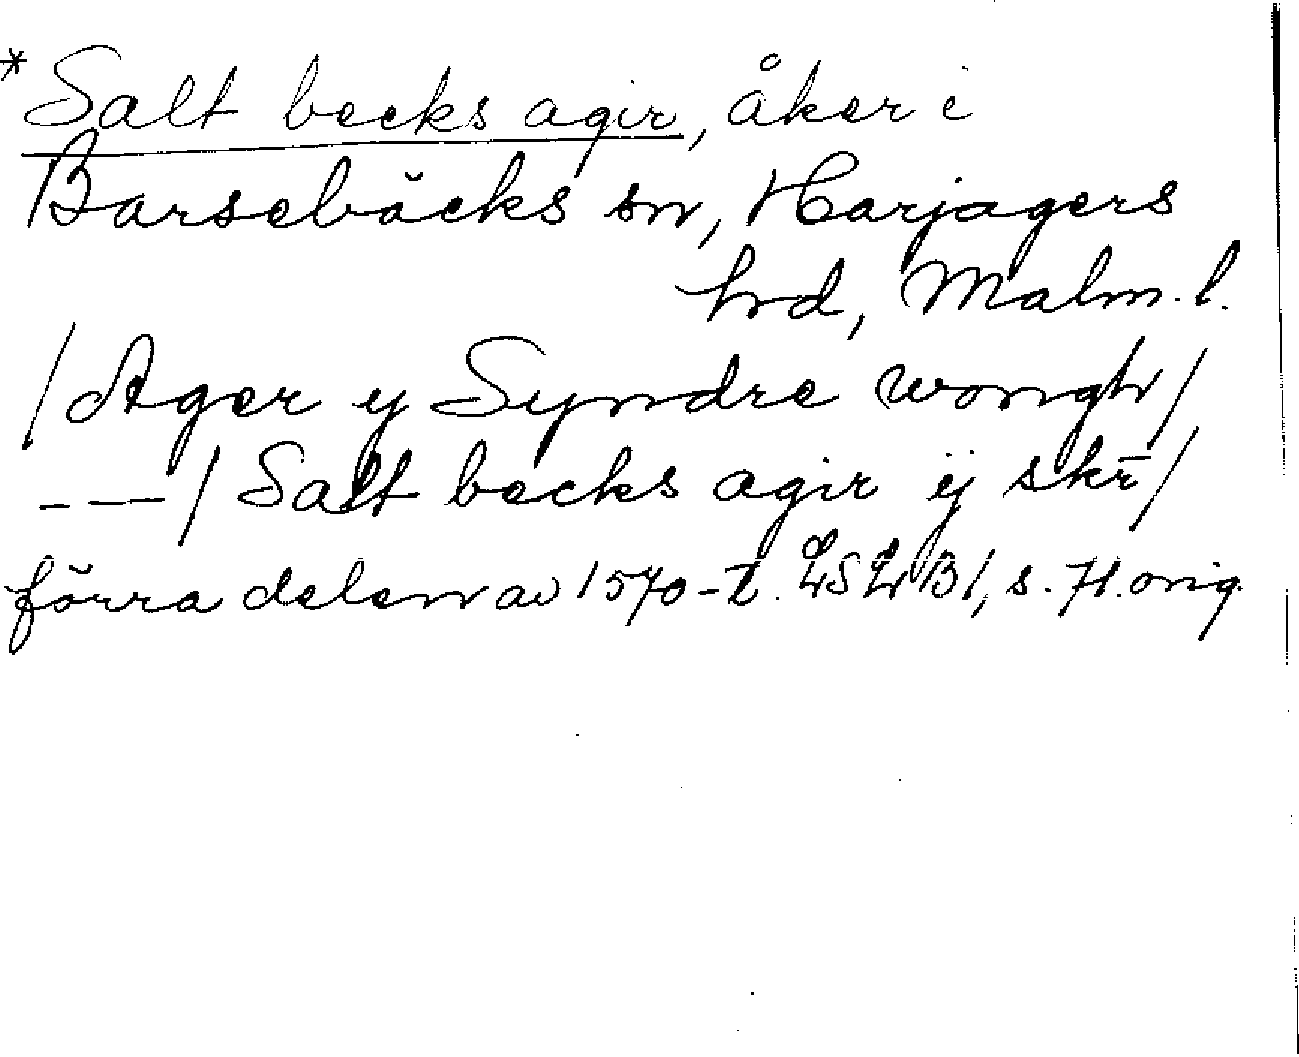 *Salt becks agir, åker i
Barsebäcks sn, Harjagers
hrd, Malm. l.
/Ager y Syndre wongh/
---/ Salt becks agir ÿ skr̄/
förra delen av 1570-t. LSLB1, s. 71. orig.